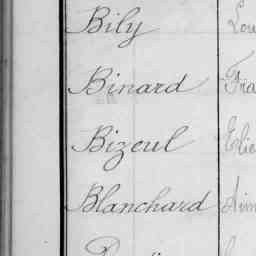 Bily Lou
Binard Fra
Bizeul
Blanchard Aim